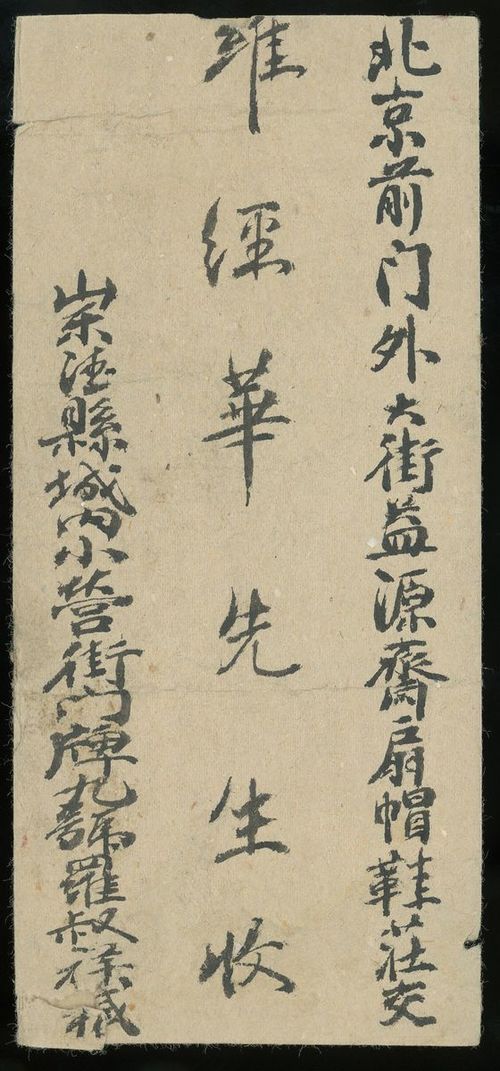 北京前门外大街益源齋扇帽鞋莊交
維經華先生收
崇德縣城内小营街门牌九號羅叔緘